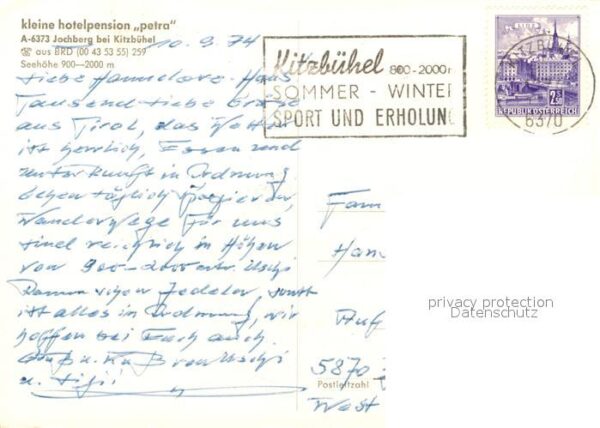 kleine hotelpension „petra“
A-6373 Jochberg bei Kitzbühel
☎ aus BRD (00 43 53 55) 259
Seehöhe 900—2000 m
10.9.74
Liebe Hannelore, Hans
Tausend liebe Grüße
aus Tirol, das Wetter
ist herrlich, Essen und
Unterkunft in Ordnung
gehen täglich spazieren,
Wanderwege für uns
sind reichlich in Höhen
von 900-2000 mtr. Uschi
schon, sonst
ist alles in Ordnung, wir
hoffen bei Euch auch.
Gruß u. Kuß Uschi
u.
Kitzbühel 800-2000m
SOMMER - WINTER
SPORT UND ERHOLUNG
KITZBÜHEL
6370
WIEN
2.50
REPUBLIK ÖSTERREICH
Fam
Han
5870
Postleitzahl
West
privacy protection
Datenschutz